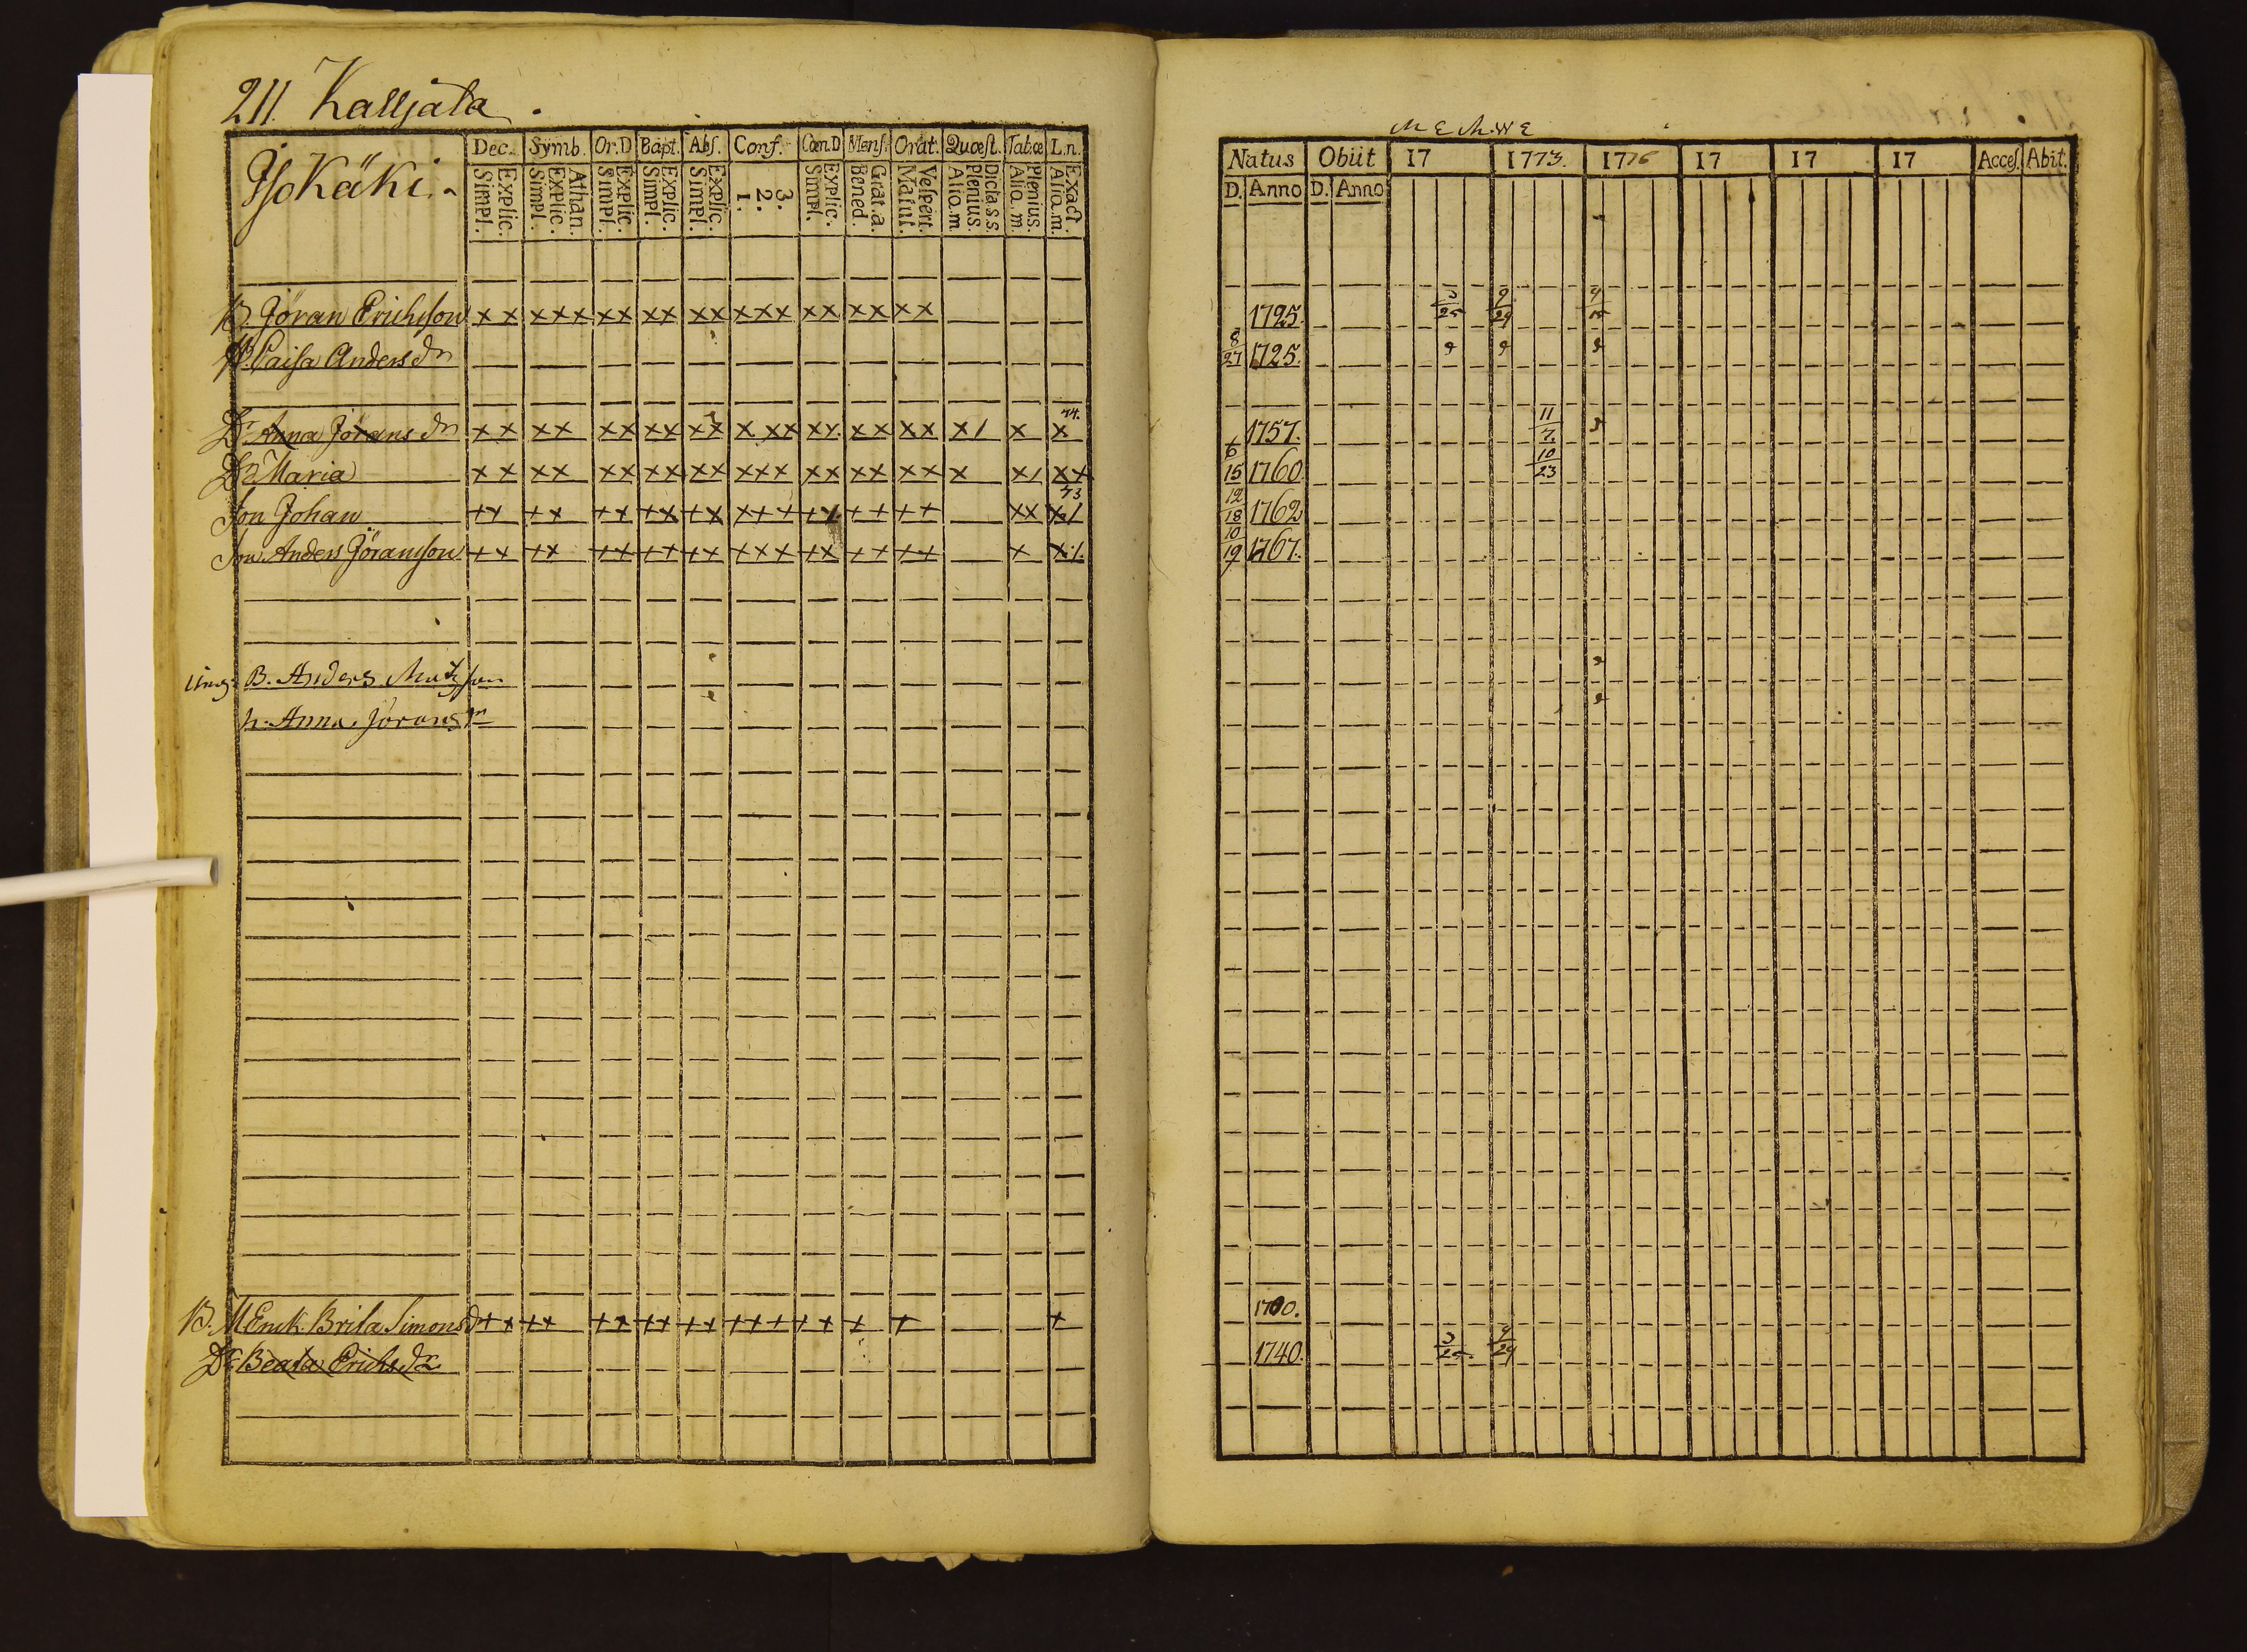 211. Kalljala.
Iso Käki.
Dec. Symb. Or.D Bapt. Abs. Conf. Cœn.D Mens. Orat. Quæst. Tab.œ L.n.
Simpl. Explic. Simpl. Explic. Athan. Simpl. Explic. Simpl. Explic. Simpl. Explic. 1. 2. 3. Simpl. Explic. Bened. Grat.a. Matut. Vespert. Alio.m Plenius. Dicta s s. Alio.m. Plenius. Alio.m. Exact.
B. Jöran Erichsson x x x x x x x x x x x x x x x x x x x x
Caisa Anders dr
Dr Anna Jörans dr x x x x x x x x x x x x x x x x x x x x / x x 74.
Dr Maria x x x x x x x x x x x x x x x x x x x x x / x x
Son Johan + + + x + + + x + x x + + + x + + + + x x x / 73
Son Anders Jöransson + + + x + + + + + + x x x + x + + + + x x /.
B. Anders Matsson
h. Anna Jörans dr
B. M Erik Brita Simonsd + + + + + + + + + + + + + + + + + +
Dr Beata Erichs dr
Natus Obiit 17 1773. 1776 17 17 17 Acces. Abit.
D. Anno D. Anno
1725. 3/25 9/29
8/27 1725.
1757. 11/7.
6/15 1760. 10/23
12/18 1762
10/19 1767.
1700.
1740. 3/25 9/29